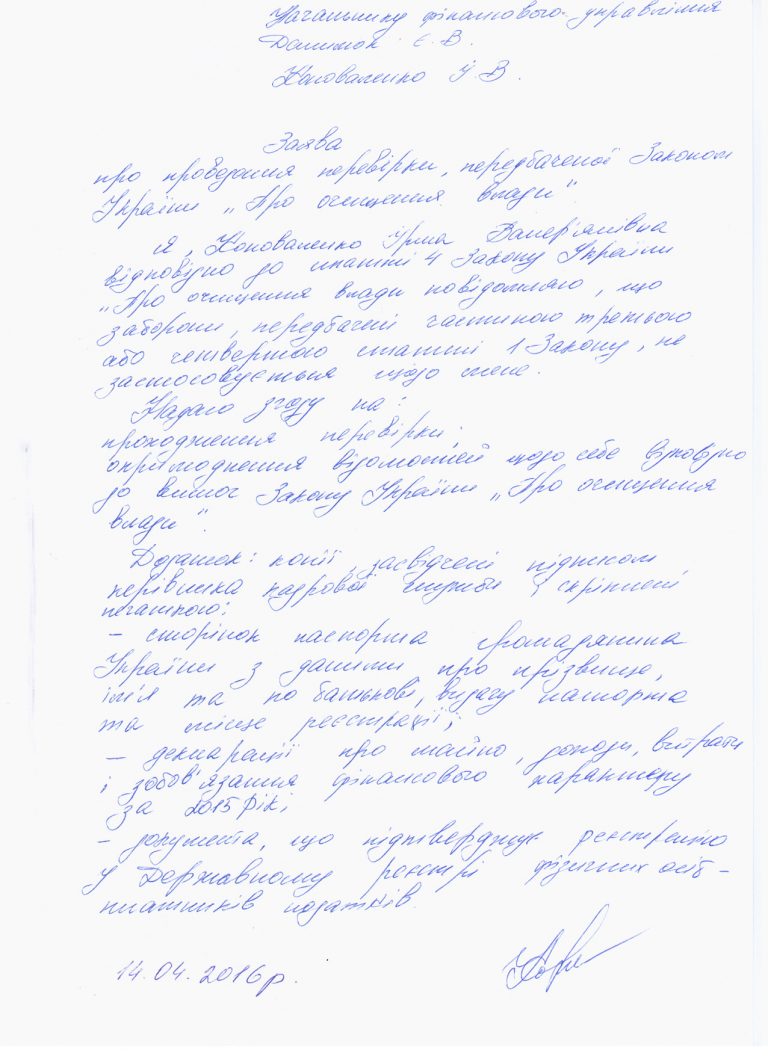 Начальнику фінансового управління
Є. В.
Коноваленко І. В.
Заява
про проведення перевірки, передбаченої Законом
України „Про очищення влади".
Я, Коноваленко Ірма Валер'янівна
відповідно до статті 4 Закону України
„Про очищення влади повідомляю, що
заборони, передбачені частиною третьою
або четвертою статті 1 Закону, не
застосовується щодо мене.
Надаю згоду на:
проходження перевірки;
оприлюднення відомостей щодо себе відповідно
до вимог Закону України „Про очищення
влади".
Додаток: копії, засвідчені підписом
керівника кадрової служби і скріплені
печаткою:
– сторінок паспорта громадянина
України з даними про прізвище,
ім'я та по батькові, видачу паспорта
та місце реєстрації;
– декларації про майно, доходи, витрати
і зобов'язання фінансового характеру
за 2015 рік;
– документа, що підтверджує реєстрацію
у Державному реєстрі фізичних осіб –
платників податків.
14.04.2016 р.